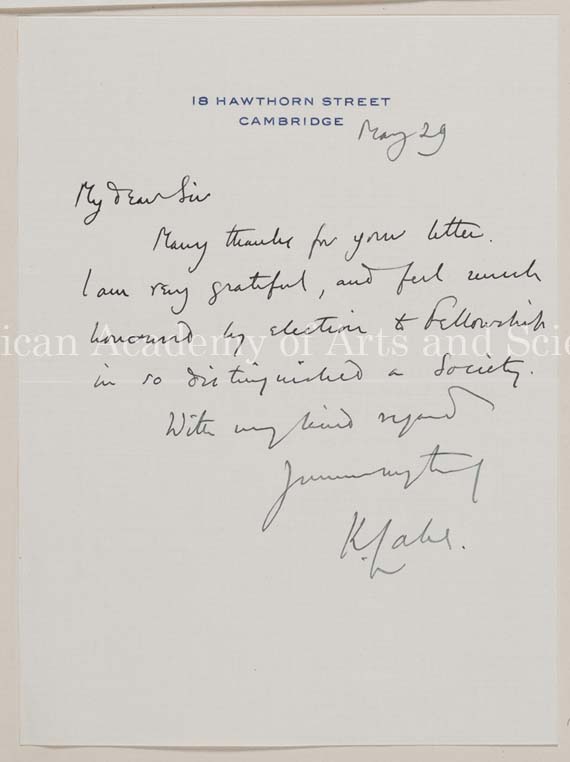 18 HAWTHORN STREET
CAMBRIDGE
May 29
My dear Sir
Many thanks for your letter.
I am very grateful, and feel much
honoured by election to Fellowship
ican Academy of Arts and Scie
in so distinguished a Society.
With my kind regards
K. Lake.